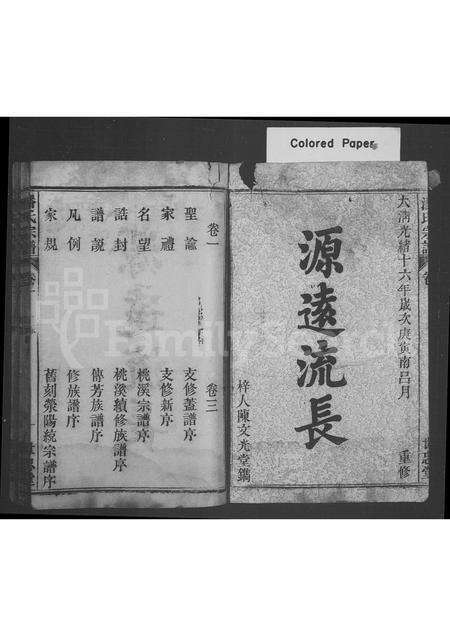 Colored Paper
大清光緒十六年歲次庚寅南呂月 重修
源遠流長
梓人陳文光堂鐫
卷一
聖諭
家禮
名望
誥封
譜說
凡例
家規
卷三
支修蓋譜序
支修新序
桃溪宗譜序
桃溪續修族譜序
傳芳族譜序
修族譜序
舊刻滎陽統宗譜序
潘氏宗譜
FamilySearch